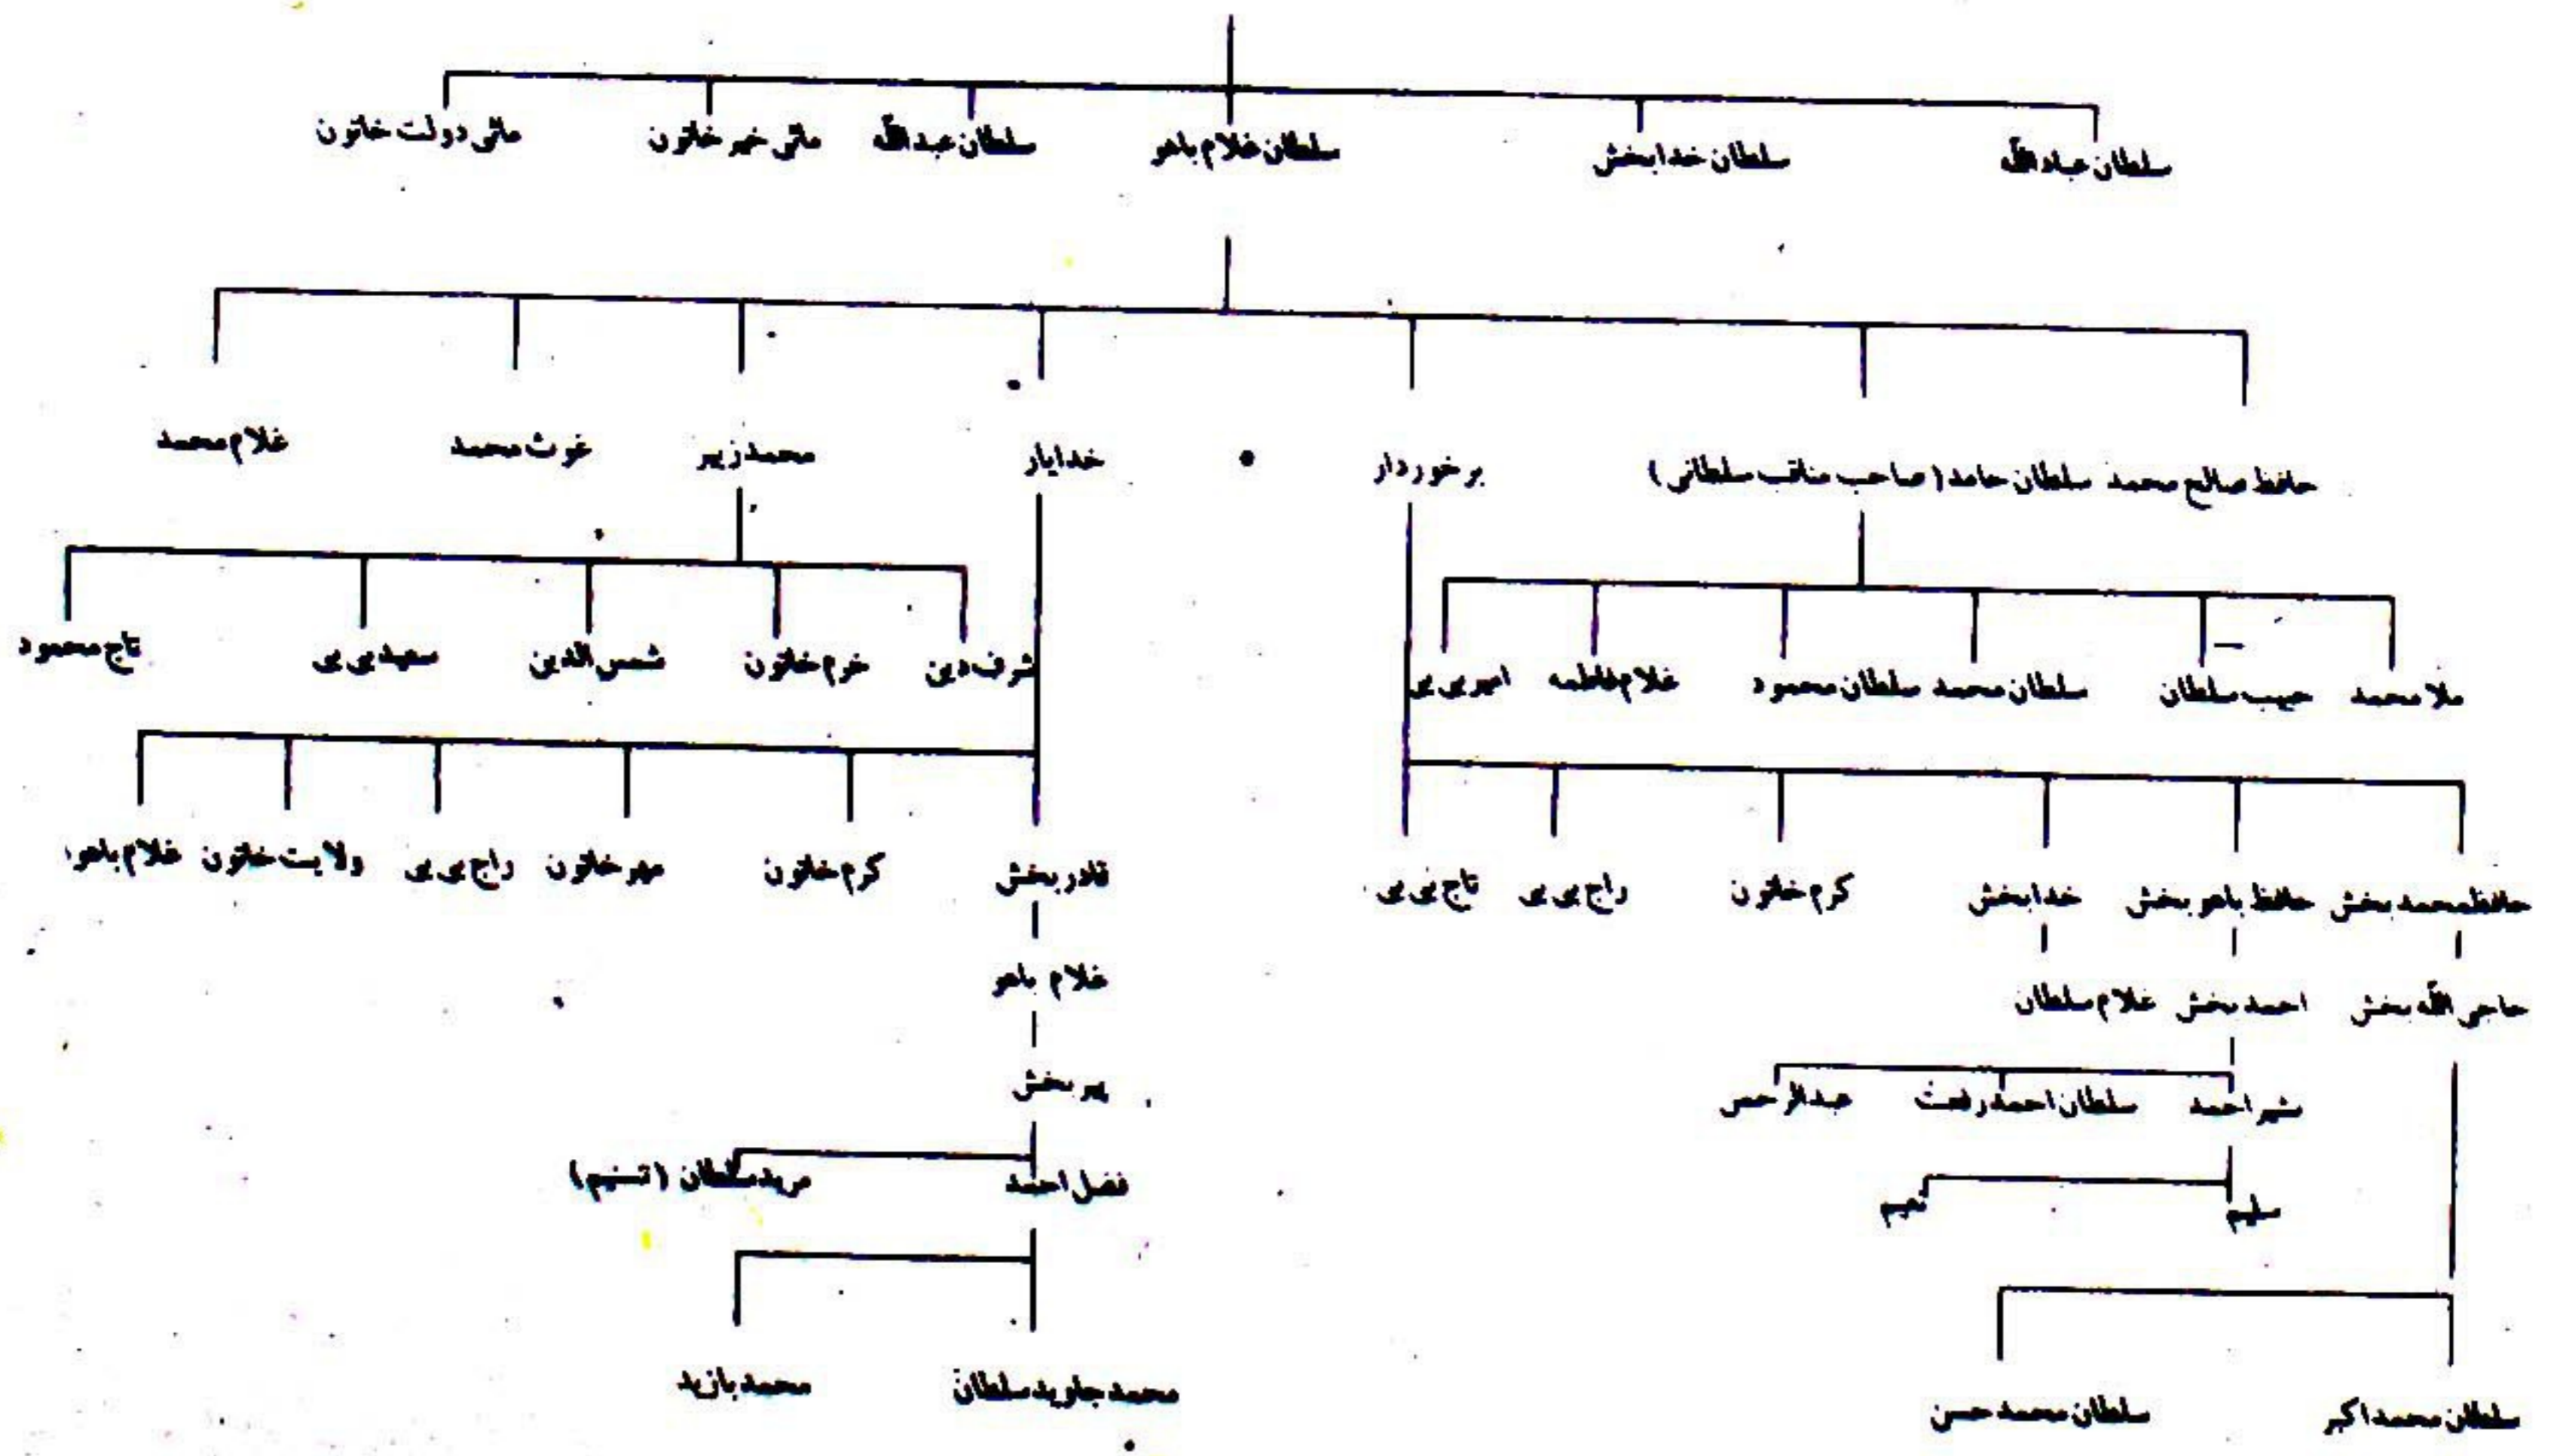 سلطان عبداللہ سلطان خدابخش سلطان غلام باهو سلطان عبداللہ مائی خیر خاتون مائی دولت خاتون
حافظ صالح محمد سلطان حامد (صاحب مناقب سلطانی) برخوردار خدایار محمد زبیر غوث محمد غلام محمد
ملا محمد حبیب سلطان سلطان محمد سلطان محمود غلام فاطمه امیر بی بی شرف دین خرم خاتون شمس الدین سعید بی بی تاج محمود
حافظ محمد بخش حافظ باهو بخش خدابخش کرم خاتون راج بی بی تاج بی بی قادر بخش کرم خاتون مهر خاتون راج بی بی ولایت خاتون غلام باهو
حاجی اللہ بخش احمد بخش غلام سلطان غلام باهو
شیر احمد سلطان احمد رفعت عبدالرحمن پیر بخش
سلیم نعیم فضل احمد مرید سلطان (تسنیم)
سلطان محمد اکبر سلطان محمد حسن محمد جاوید سلطان محمد بازید